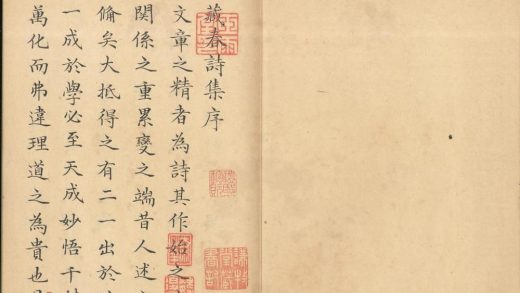 藏春詩集序
文章之精者為詩其作始之
關係之重累變之端昔人述
脩矣大抵得之有二一出於
一成於學必至天成妙悟千
萬化而弗違理道之為貴也